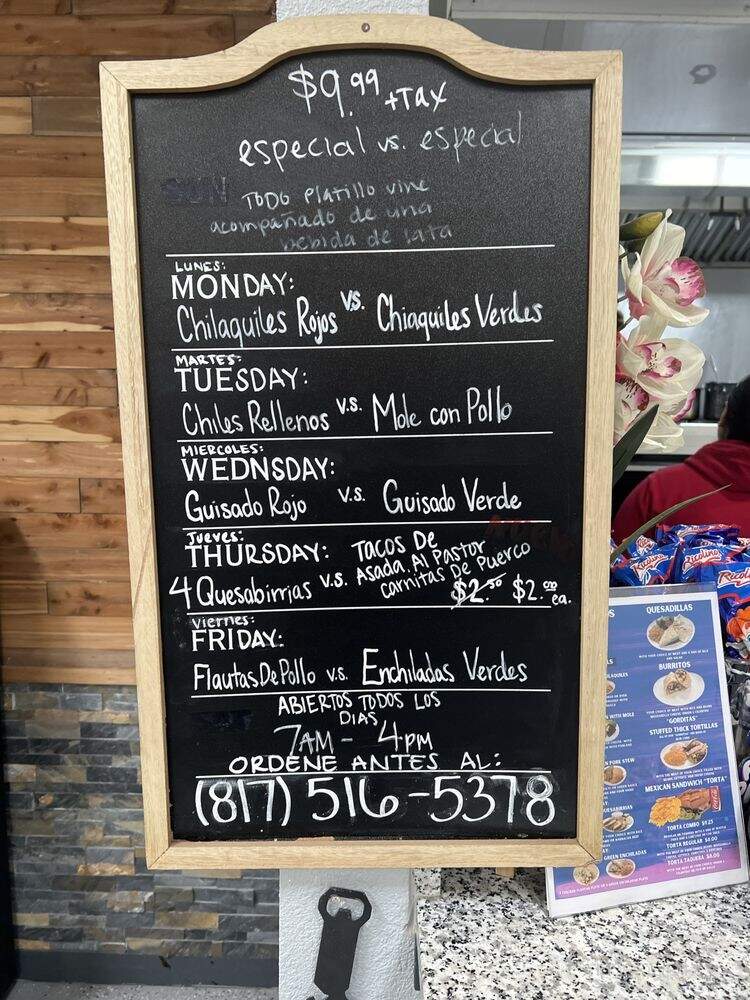 $9.99 +Tax
especial vs. especial
SUN
TODO Platillo vine
acompañado de una
bebida de lata
LUNES:
MONDAY:
Chilaquiles Rojos vs. Chiaquiles Verdes
MARTES:
TUESDAY:
Chiles Rellenos v.s. Mole con Pollo
MIERCOLES:
WEDNSDAY:
Guisado Rojo v.s. Guisado Verde
Jueves:
THURSDAY: Tacos De
4 Quesabirrias v.s. Asada Al Pastor
carnitas De Puerco
$2.50 $2.00 ea.
viernes:
FRIDAY:
Flautas De Pollo v.s. Enchiladas Verdes
ABIERTOS TODOS LOS
DIAS
7AM - 4PM
ORDENE ANTES AL:
(817) 516-5378
QUESADILLAS
BURRITOS
"GORDITAS"
STUFFED THICK TORTILLAS
MEXICAN SANDWICH "TORTA"
TORTA COMBO $9.25
TORTA REGULAR $8.00
TORTA TAQUERA $8.00
GREEN ENCHILADAS